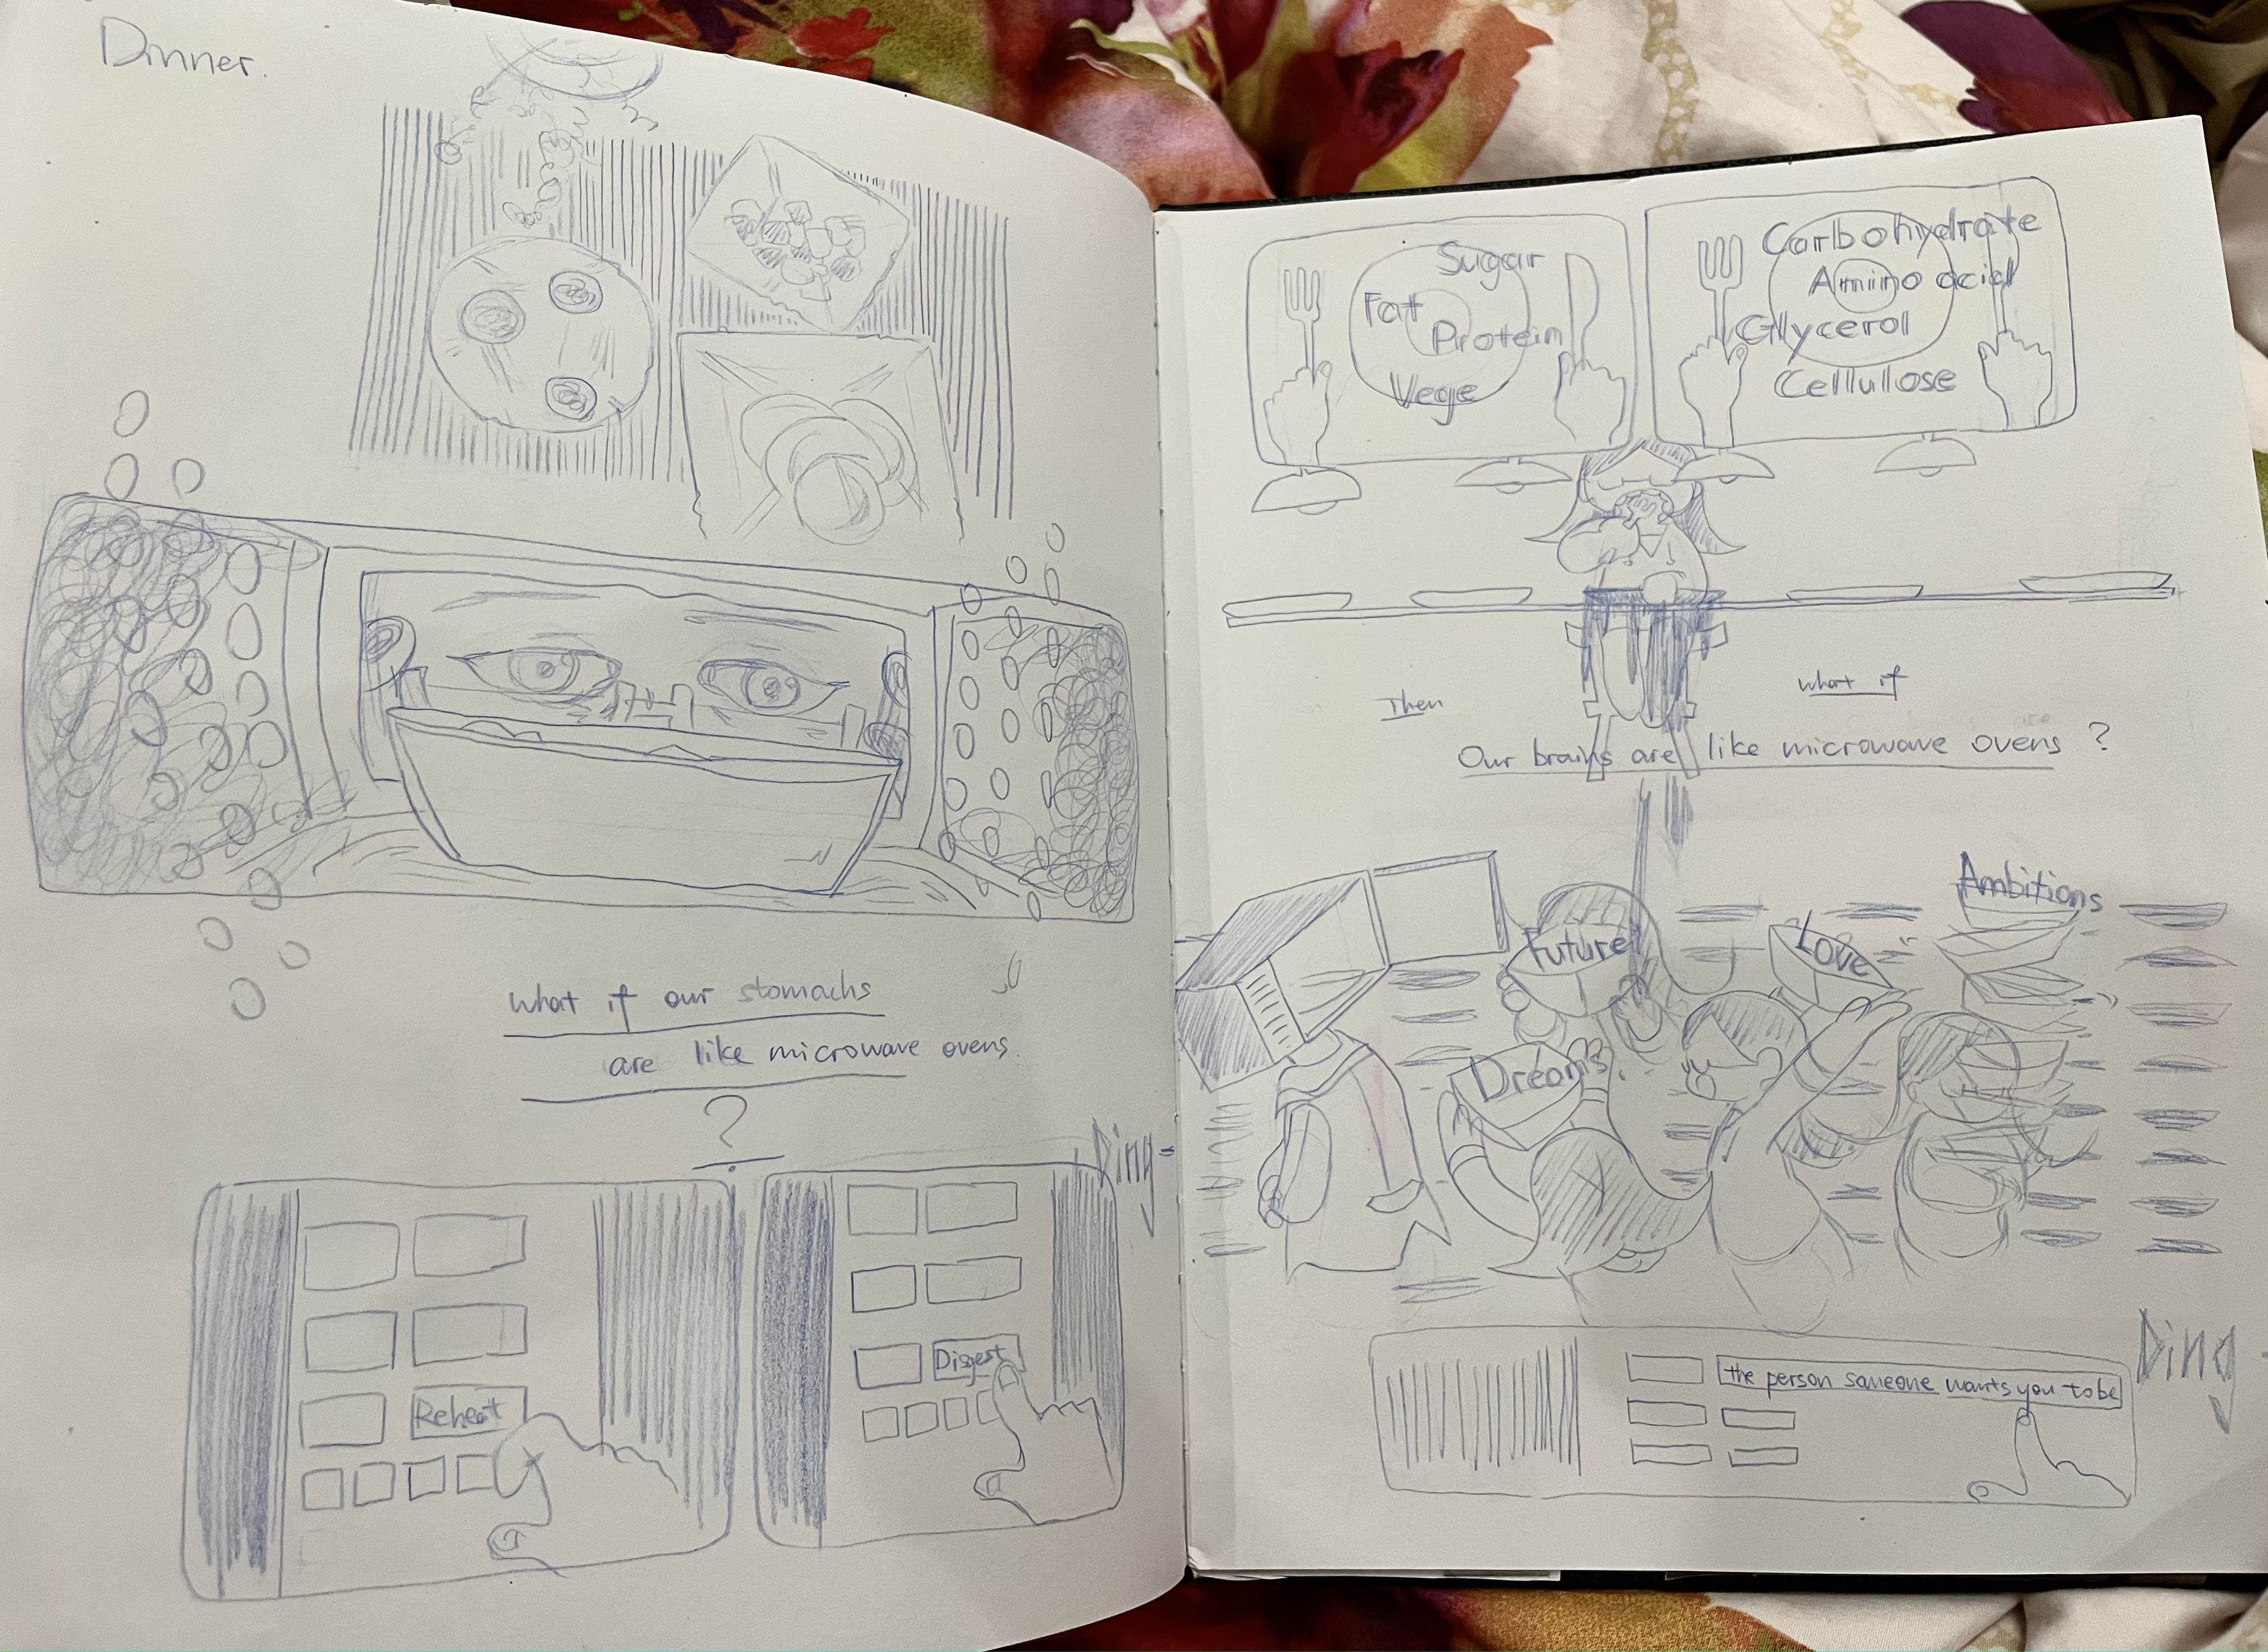 Dinner.
what if our stomachs
are like microwave ovens.
?
Reheat
Disgest
Ding
Sugar
Fat
Protein
Vege
Carbohydrate
Amino acid
Glycerol
Cellullose
Then
what if
Our brains are like microwave ovens ?
Ambitions
Future
Love
Dreams
the person someone wants you to be
Ding